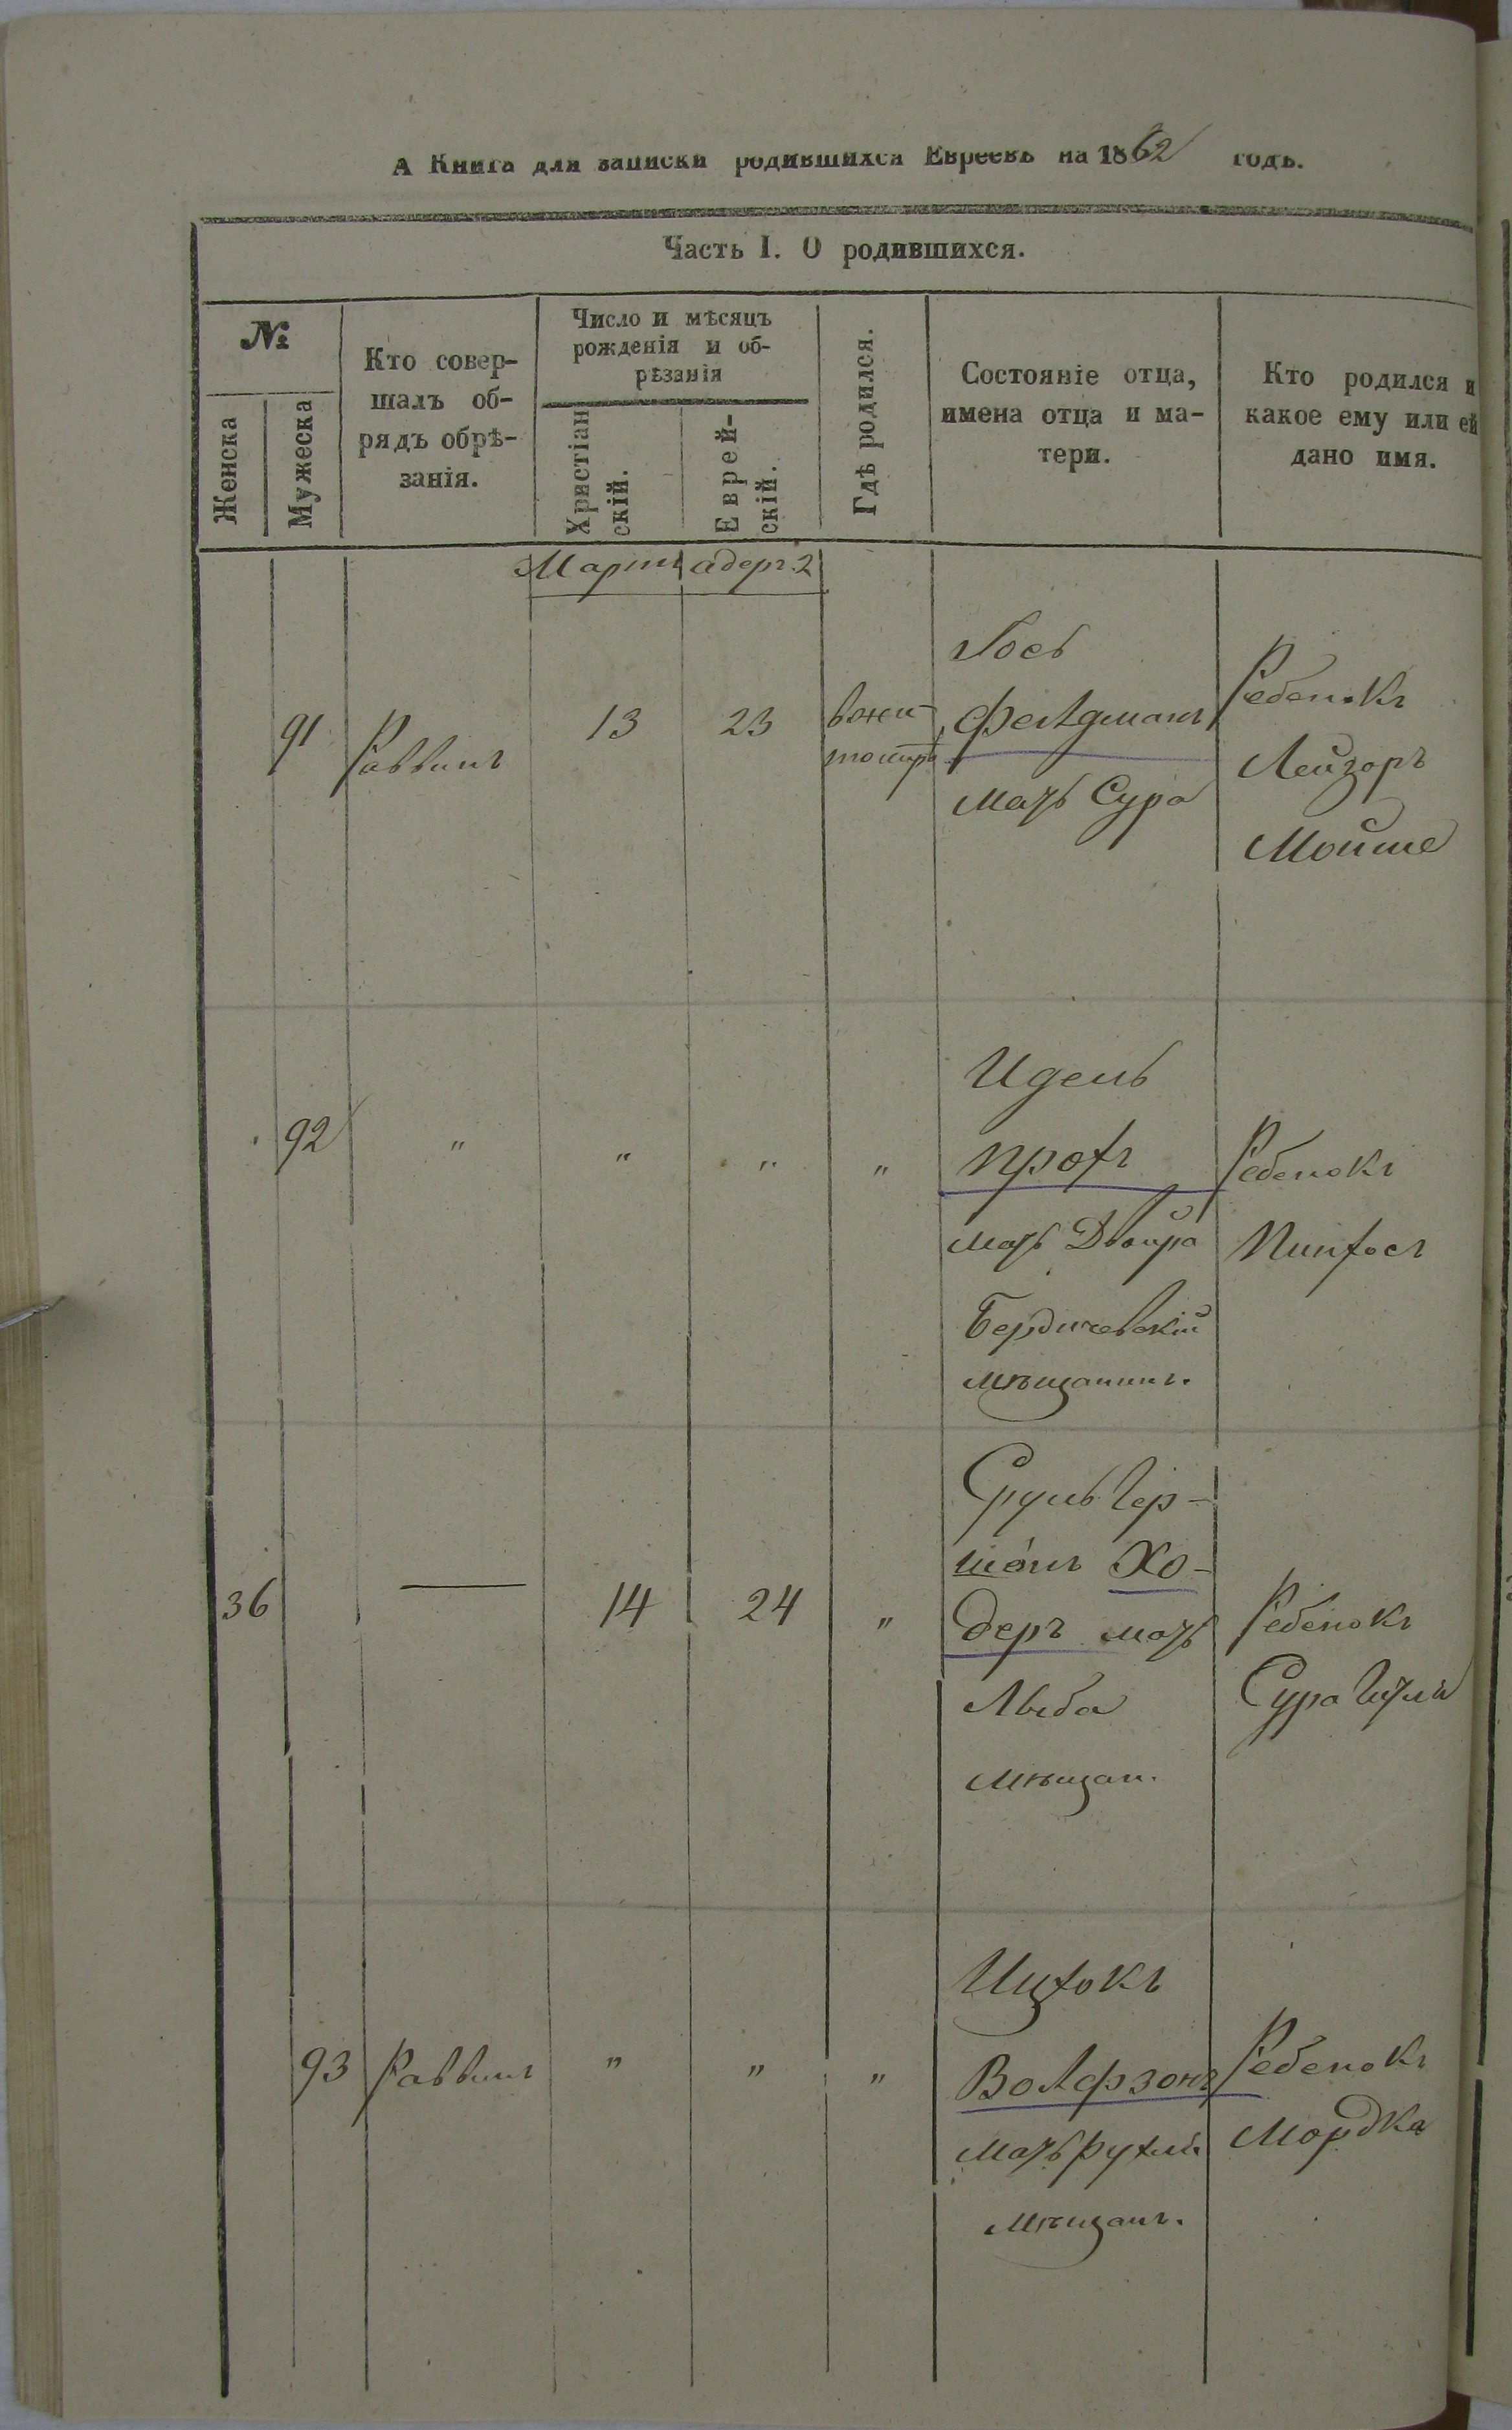 А Книга для записки родившихся Евреевъ на 1862 годъ.
Часть I. О родившихся.
№
Женска
Мужеска
Кто совер-
шалъ об-
рядъ обрѣ-
занія.
Число и мѣсяцъ
рожденія и об-
рѣзанія
Христіан
скій.
Еврей-
скій.
Гдѣ родился.
Состояніе отца,
имена отца и ма-
тери.
Кто родился и
какое ему или ей
дано имя.
Мартъ адеръ 2
91
Раввинъ
13
23
вжи-
томирѣ
Іось
Фелдманъ
мать Сура
Ребенокъ
Лейзоръ
Мойше
92
"
"
"
"
Идель
Прохъ
мать Двойра
Бердичевскій
мѣщанинъ.
Ребенокъ
Пинхосъ
36
—
14
24
"
Сруль Гер-
шонъ Хо-
деръ мать
Лыба
мѣщан.
Ребенокъ
Сура
93
Раввинъ
"
"
"
Ицхокъ
Волфзонъ
мать Рухля
мѣщанъ.
Ребенокъ
Мордка